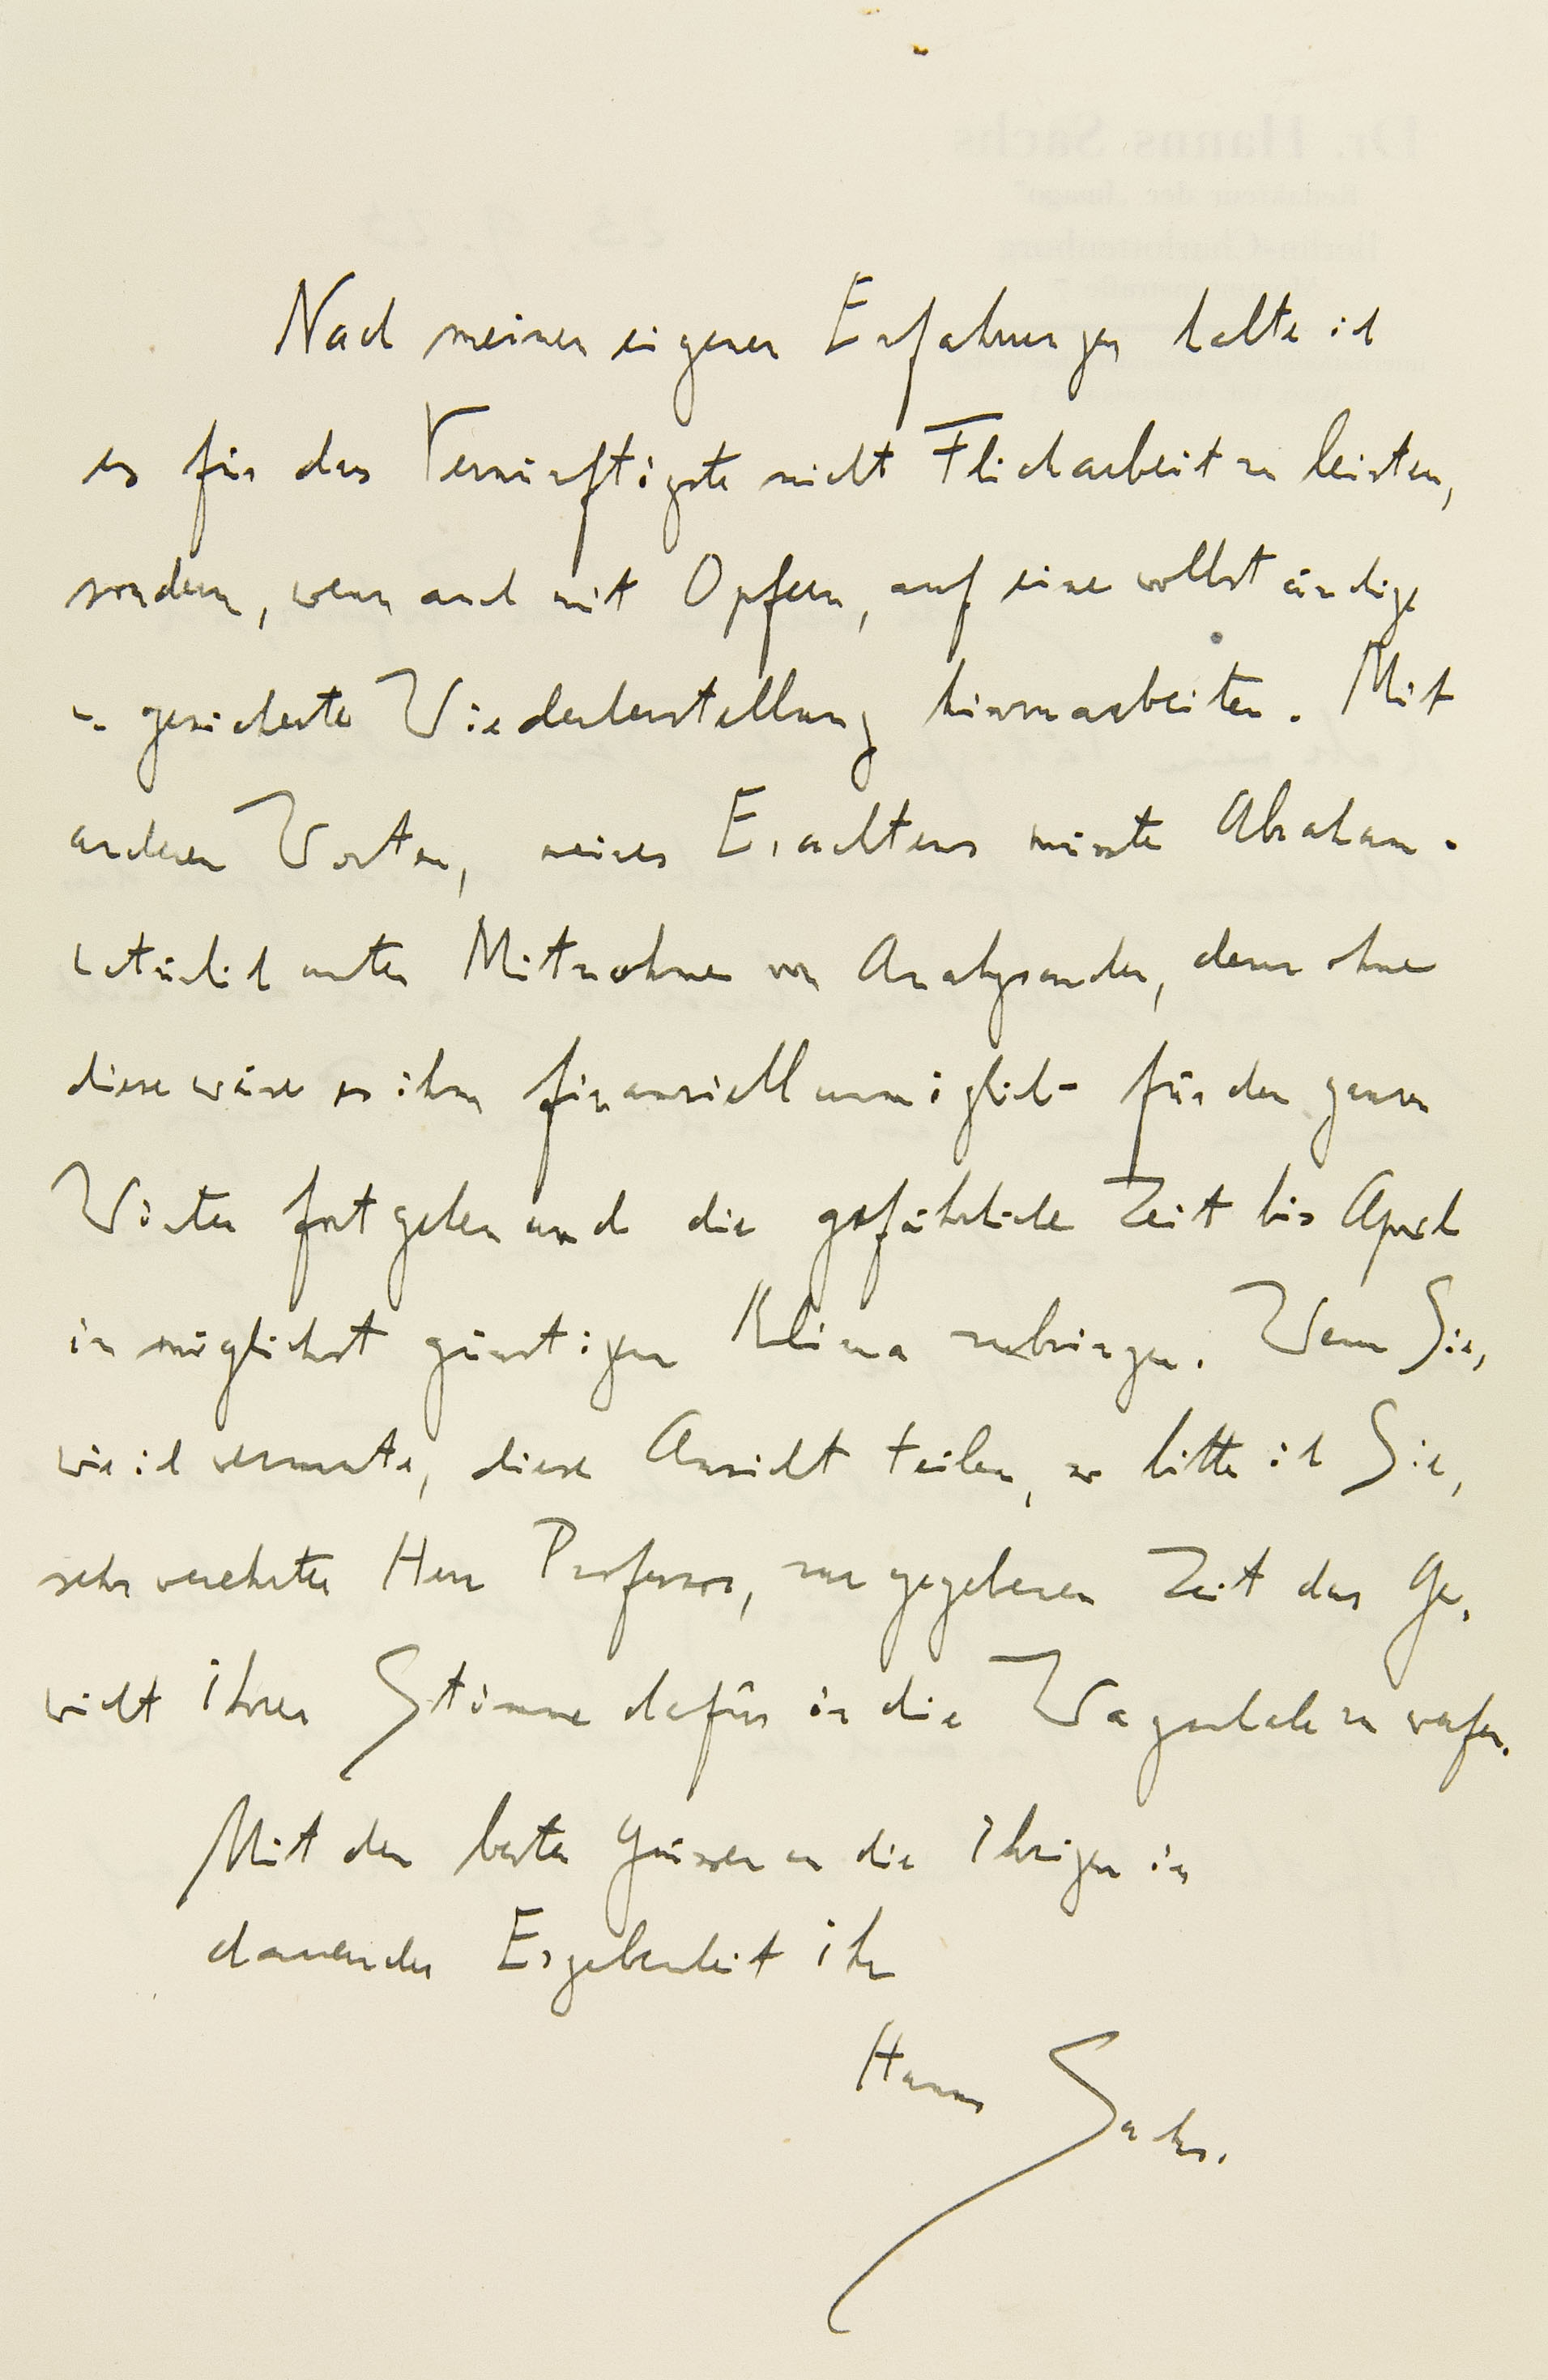 Nach meinen eigenen Erfahrungen halte ich
es für das Vernünftigste nicht Flickarbeit zu leisten,
sondern, wenn auch mit Opfern, auf eine vollständige
u. gesicherte Wiederherstellung hinzuarbeiten. Mit
anderen Worten, meines Erachtens müsste Abraham -
natürlich unter Mitnahme von Analysanden, denn ohne
diese wäre es ihm finanziell unmöglich - für den ganzen
Winter fortgehen und die gefährliche Zeit bis April
in möglichst günstigem Klima zubringen. Wenn Sie,
wie ich vermute, diese Ansicht teilen, so bitte ich Sie,
sehr verehrter Herr Professor, zur gegebenen Zeit das Ge-
wicht Ihrer Stimme dafür in die Wagschale zu werfen.
Mit den besten Grüssen an die Ihrigen in
dauernder Ergebenheit Ihr
Hanns Sachs.